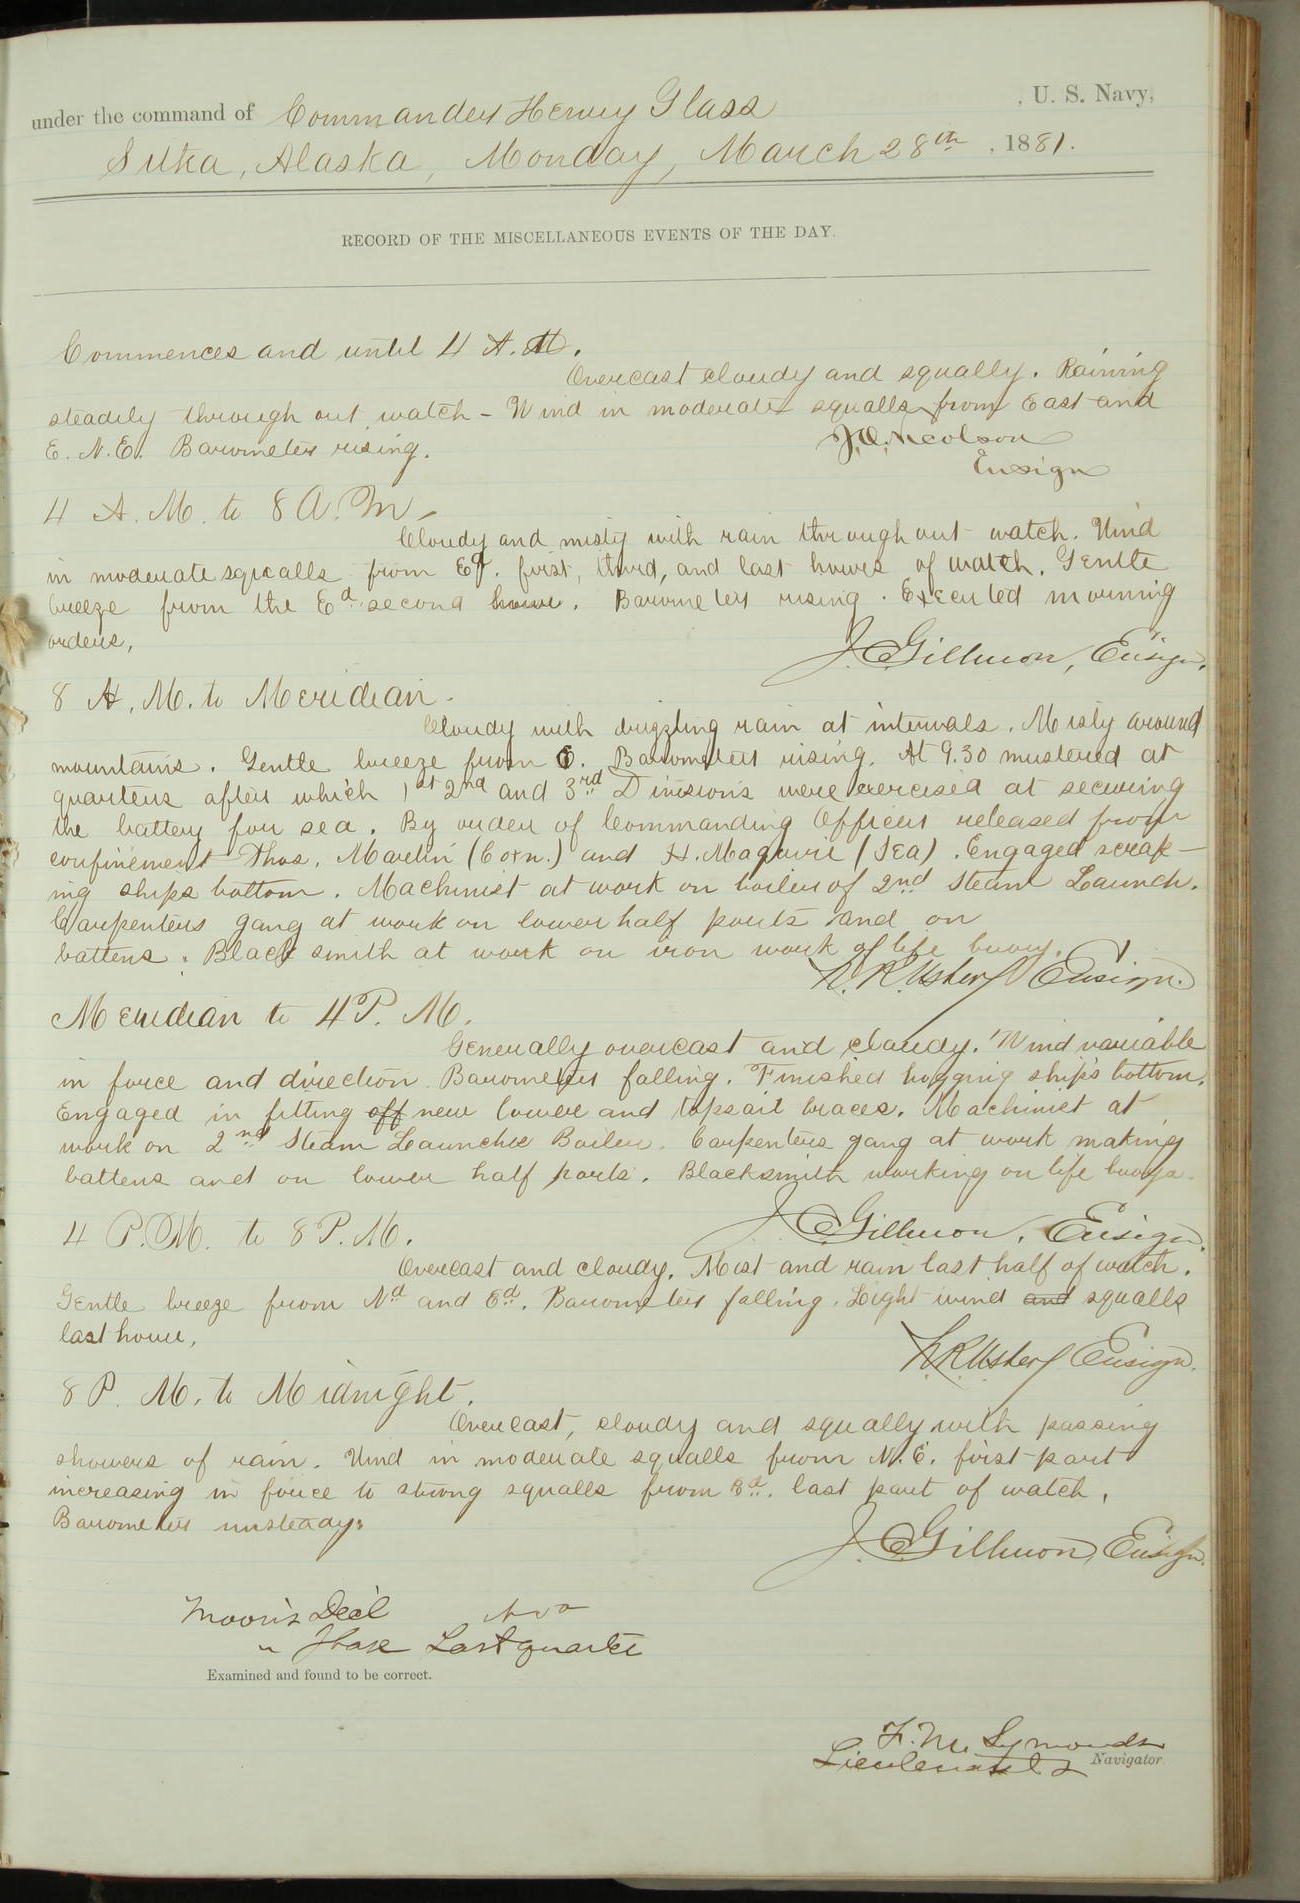 under the command of Commander Henry Glass , U. S. Navy,
Sitka, Alaska, Monday, March 28th , 1881.
RECORD OF THE MISCELLANEOUS EVENTS OF THE DAY.
Commences and until 4 A. M.
Overcast cloudy and squally. Raining
steadily through out watch - Wind in moderate squalls from East and
E. N. E. Barometer rising.
J. O. Nicolson
Ensign
4 A. M. to 8 A. M.
Cloudy and misty with rain through out watch. Wind
in moderate squalls from Ed. first, third, and last hours of watch. Gentle
breeze from the Ed second hour. Barometer rising. Executed morning
orders.
J. C. Gillmor, Ensign.
8 A. M. to Meridian.
Cloudy with drizzling rain at intervals. Misty around
mountains. Gentle breeze from E. Barometer rising. At 9.30 mustered at
quarters after which 1st 2nd and 3rd Divisions were exercised at securing
the battery for sea. By order of Commanding Officer released from
confinement Thos. (Coxn.) and H. Maguire (Sea). Engaged scrap-
ing ships bottom. Machinist at work on boiler of 2nd Steam Launch.
Carpenters gang at work on lower half ports and on
battens. Black smith at work on iron work of life buoy.
N. R. Usher Ensign.
Meridian to 4 P. M.
Generally overcast and cloudy. Wind variable
in force and direction. Barometer falling. Finished hogging ship's bottom.
Engaged in fitting off new lower and topsail braces. Machinist at
work on 2nd Steam Launche Boiler. Carpenters gang at work making
battens and on lower half ports. Blacksmith working on life buoys.
J. C. Gillmor, Ensign.
4 P. M. to 8 P. M.
Overcast and cloudy. Mist and rain last half of watch.
Gentle breeze from Nd and Ed. Barometer falling. Light wind and squalls
last hour.
N. R. Usher Ensign.
8 P. M. to Midnight.
Overcast, cloudy and squally with passing
showers of rain. Wind in moderate squalls from N. E. first part
increasing in force to strong squalls from Ed. last part of watch.
Barometer unsteady.
J. C. Gillmor, Ensign.
Moon's Decl
" Phase Last quarter
Examined and found to be correct.
F. M. Symonds
Lieutenant & Navigator.